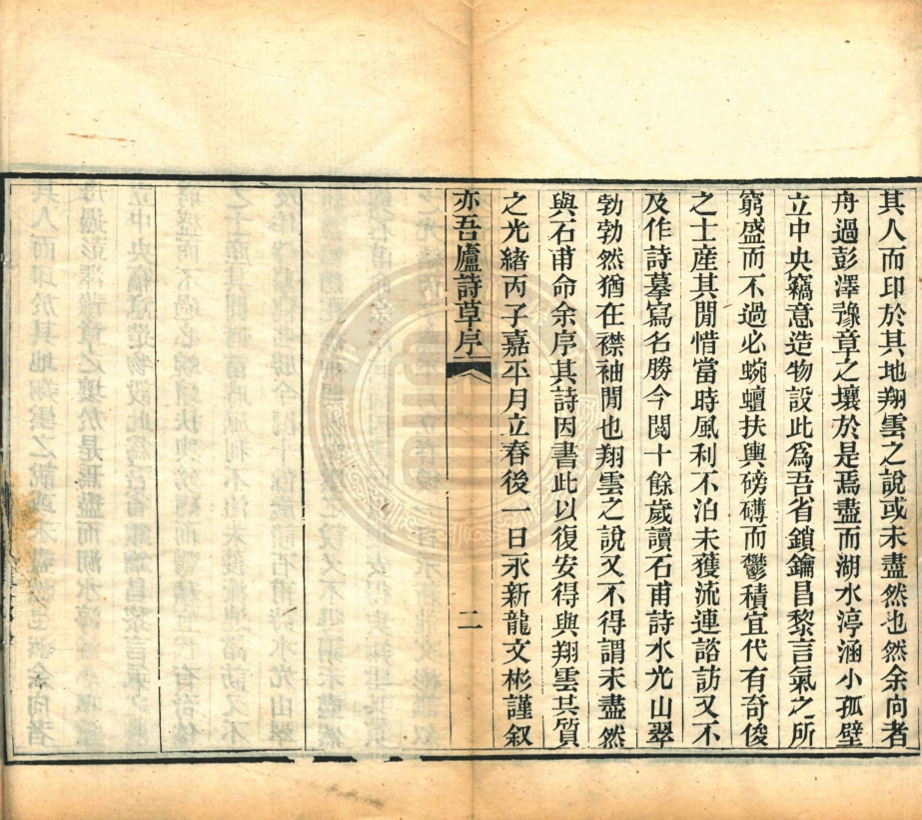 其人而印於其地翔雲之說或未盡然也然余向者
舟過彭澤豫章之壤於是焉盡而湖水渟涵小孤壁
立中央竊意造物設此爲吾省鎖鑰昌黎言氣之所
窮盛而不過必蜿蟺扶輿磅礴而鬱積宜代有奇俊
之士產其閒惜當時風利不泊未獲流連諮訪又不
及作詩摹寫名勝今閱十餘歲讀石甫詩水光山翠
勃勃然猶在襟袖閒也翔雲之說又不得謂未盡然
與石甫命余序其詩因書此以復安得與翔雲共質
之光緒丙子嘉平月立春後一日永新龍文彬謹叙
亦吾廬詩草序 二